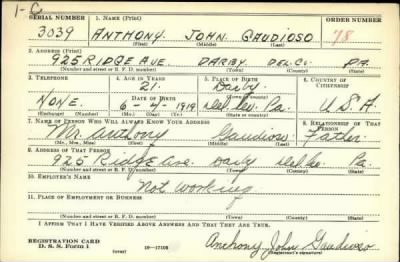 1-C
SERIAL NUMBER 1. NAME (Print) ORDER NUMBER
3039 ANTHONY JOHN GAUDIOSO 78
(First) (Middle) (Last)
2. ADDRESS (Print)
925 RIDGE AVE. DARBY DEL.CO. PA.
(Number and street or R. F. D. number) (Town) (County) (State)
3. TELEPHONE 4. AGE IN YEARS 5. PLACE OF BIRTH 6. COUNTRY OF CITIZENSHIP
21 Darby
DATE OF BIRTH (Town or county)
NONE. 6-4-1919 Del. Co. Pa. U.S.A
(Exchange) (Number) (Mo.) (Day) (Yr.) (State or country)
7. NAME OF PERSON WHO WILL ALWAYS KNOW YOUR ADDRESS 8. RELATIONSHIP OF THAT PERSON
Mr. Anthony Gaudioso Father
(Mr., Mrs., Miss) (First) (Middle) (Last)
9. ADDRESS OF THAT PERSON
925 Ridge Ave. Darby Del Co. Pa.
(Number and street or R. F. D. number) (Town) (County) (State)
10. EMPLOYER'S NAME
Not working
11. PLACE OF EMPLOYMENT OR BUSINESS
(Number and street or R. F. D. number) (Town) (County) (State)
I AFFIRM THAT I HAVE VERIFIED ABOVE ANSWERS AND THAT THEY ARE TRUE.
REGISTRATION CARD
D. S. S. Form 1 (over) 16—17105 Anthony John Gaudioso
(Registrant's signature)